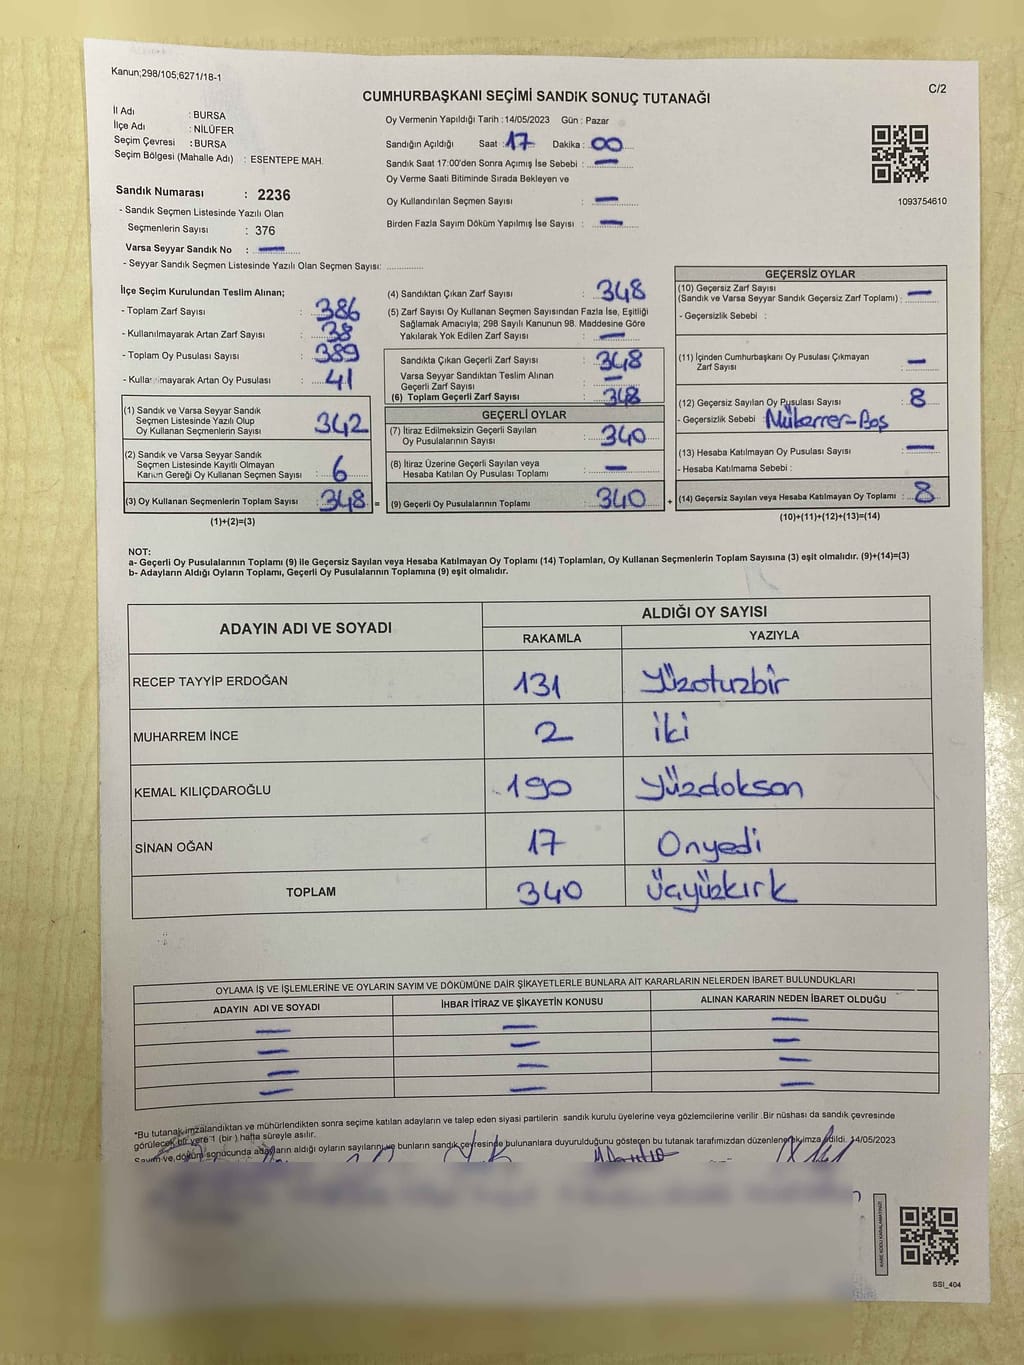 Kanun;298/105;6271/18-1
C/2
CUMHURBAŞKANI SEÇİMİ SANDIK SONUÇ TUTANAĞI
İl Adı : BURSA
İlçe Adı : NİLÜFER
Seçim Çevresi : BURSA
Seçim Bölgesi (Mahalle Adı) : ESENTEPE MAH.
Oy Vermenin Yapıldığı Tarih : 14/05/2023 Gün : Pazar
Sandığın Açıldığı Saat : 17 Dakika : 00
Sandık Saat 17:00'den Sonra Açımış İse Sebebi : —
Oy Verme Saati Bitiminde Sırada Bekleyen ve
Oy Kullandırılan Seçmen Sayısı : —
Birden Fazla Sayım Döküm Yapılmış İse Sayısı : —
1093754610
Sandık Numarası : 2236
- Sandık Seçmen Listesinde Yazılı Olan
Seçmenlerin Sayısı : 376
Varsa Seyyar Sandık No : —
- Seyyar Sandık Seçmen Listesinde Yazılı Olan Seçmen Sayısı: ..............
İlçe Seçim Kurulundan Teslim Alınan;
- Toplam Zarf Sayısı : 386
- Kullanılmayarak Artan Zarf Sayısı : 38
- Toplam Oy Pusulası Sayısı : 389
- Artan Oy Pusulası : 41
(1) Sandık ve Varsa Seyyar Sandık
Seçmen Listesinde Yazılı Olup
Oy Kullanan Seçmenlerin Sayısı : 342
(2) Sandık ve Varsa Seyyar Sandık
Seçmen Listesinde Kayıtlı Olmayan
Kanun Gereği Oy Kullanan Seçmen Sayısı : 6
(3) Oy Kullanan Seçmenlerin Toplam Sayısı : 348 =
(1)+(2)=(3)
(4) Sandıktan Çıkan Zarf Sayısı : 348
(5) Zarf Sayısı Oy Kullanan Seçmen Sayısından Fazla İse, Eşitliği
Sağlamak Amacıyla; 298 Sayılı Kanunun 98. Maddesine Göre
Yakılarak Yok Edilen Zarf Sayısı : —
Sandıkta Çıkan Geçerli Zarf Sayısı : 348
Varsa Seyyar Sandıktan Teslim Alınan
Geçerli Zarf Sayısı : —
(6) Toplam Geçerli Zarf Sayısı : 348
GEÇERLİ OYLAR
(7) İtiraz Edilmeksizin Geçerli Sayılan
Oy Pusulalarının Sayısı : 340
(8) İtiraz Üzerine Geçerli Sayılan veya
Hesaba Katılan Oy Pusulası Toplamı : —
(9) Geçerli Oy Pusulalarının Toplamı : 340 +
GEÇERSİZ OYLAR
(10) Geçersiz Zarf Sayısı
(Sandık ve Varsa Seyyar Sandık Geçersiz Zarf Toplamı) : —
- Geçersizlik Sebebi :
(11) İçinden Cumhurbaşkanı Oy Pusulası Çıkmayan
Zarf Sayısı : —
(12) Geçersiz Sayılan Oy Pusulası Sayısı : 8
- Geçersizlik Sebebi : Mükerrer-Boş
(13) Hesaba Katılmayan Oy Pusulası Sayısı : —
- Hesaba Katılmama Sebebi :
(14) Geçersiz Sayılan veya Hesaba Katılmayan Oy Toplamı : 8
(10)+(11)+(12)+(13)=(14)
NOT:
a- Geçerli Oy Pusulalarının Toplamı (9) ile Geçersiz Sayılan veya Hesaba Katılmayan Oy Toplamı (14) Toplamları, Oy Kullanan Seçmenlerin Toplam Sayısına (3) eşit olmalıdır. (9)+(14)=(3)
b- Adayların Aldığı Oyların Toplamı, Geçerli Oy Pusulalarının Toplamına (9) eşit olmalıdır.
ADAYIN ADI VE SOYADI ALDIĞI OY SAYISI
RAKAMLA YAZIYLA
RECEP TAYYİP ERDOĞAN 131 Yüzotuzbir
MUHARREM İNCE 2 iki
KEMAL KILIÇDAROĞLU 190 Yüzdoksan
SİNAN OĞAN 17 Onyedi
TOPLAM 340 üçyüzkırk
OYLAMA İŞ VE İŞLEMLERİNE VE OYLARIN SAYIM VE DÖKÜMÜNE DAİR ŞİKAYETLERLE BUNLARA AİT KARARLARIN NELERDEN İBARET BULUNDUKLARI
ADAYIN ADI VE SOYADI İHBAR İTİRAZ VE ŞİKAYETİN KONUSU ALINAN KARARIN NEDEN İBARET OLDUĞU
— — —
— — —
— — —
— — —
*Bu tutanak imzalandıktan ve mühürlendikten sonra seçime katılan adayların ve talep eden siyasi partilerin sandık kurulu üyelerine veya gözlemcilerine verilir. Bir nüshası da sandık çevresinde
görülecek bir yere 1 (bir) hafta süreyle asılır.
Sayım ve döküm sonucunda adayların aldığı oyların sayılarını ve bunların sandık çevresinde bulunanlara duyurulduğunu gösteren bu tutanak tarafımızdan düzenlenerek imza edildi. 14/05/2023
SSI_404